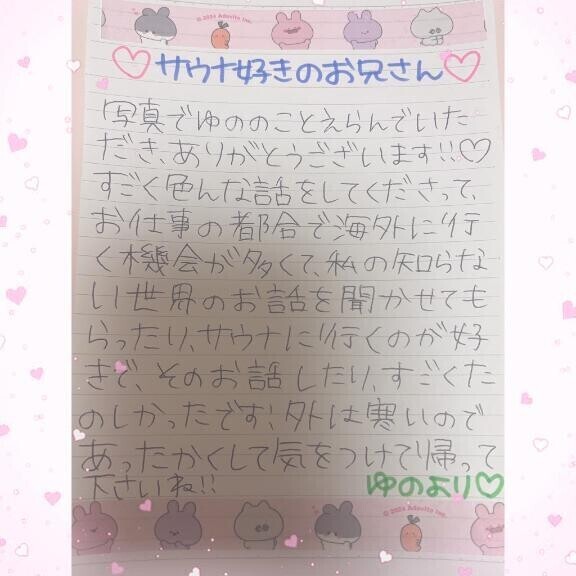 © 2024 Adovite Inc.
♡サウナ好きのお兄さん♡
写真でゆののことえらんでいた
だき、ありがとうございます!!♡
すごく色んな話をしてくださって、
お仕事の都合で海外に行
く機会が多くて、私の知らな
い世界のお話を聞かせても
らったり、サウナに行くのが好
きで、そのお話したり、すごくた
のしかったです!外は寒いので
あったかくして気をつけて帰って
下さいね!!
ゆのより♡
© 2024 Adovite Inc.